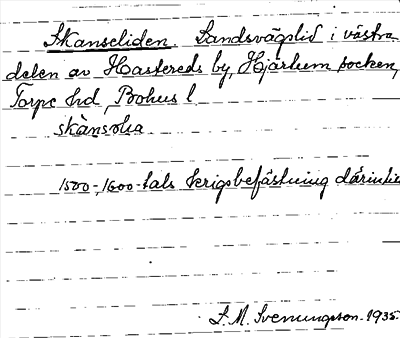 Skanseliden Landsvägslid i västra
delen av Hastereds by, Hjärtum socken,
Torpe hd, Bohus l
skànsəlia
1500-, 1600-tals krigsbefästning därintill
S. M. Svenungson. 1935.